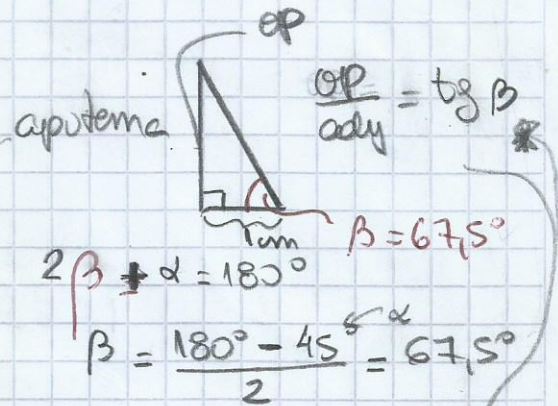 op
apotema
op/ady = tg β *
1cm
β = 67,5°
2β + α = 180°
β = (180° - 45°)/2 = 67,5°
α